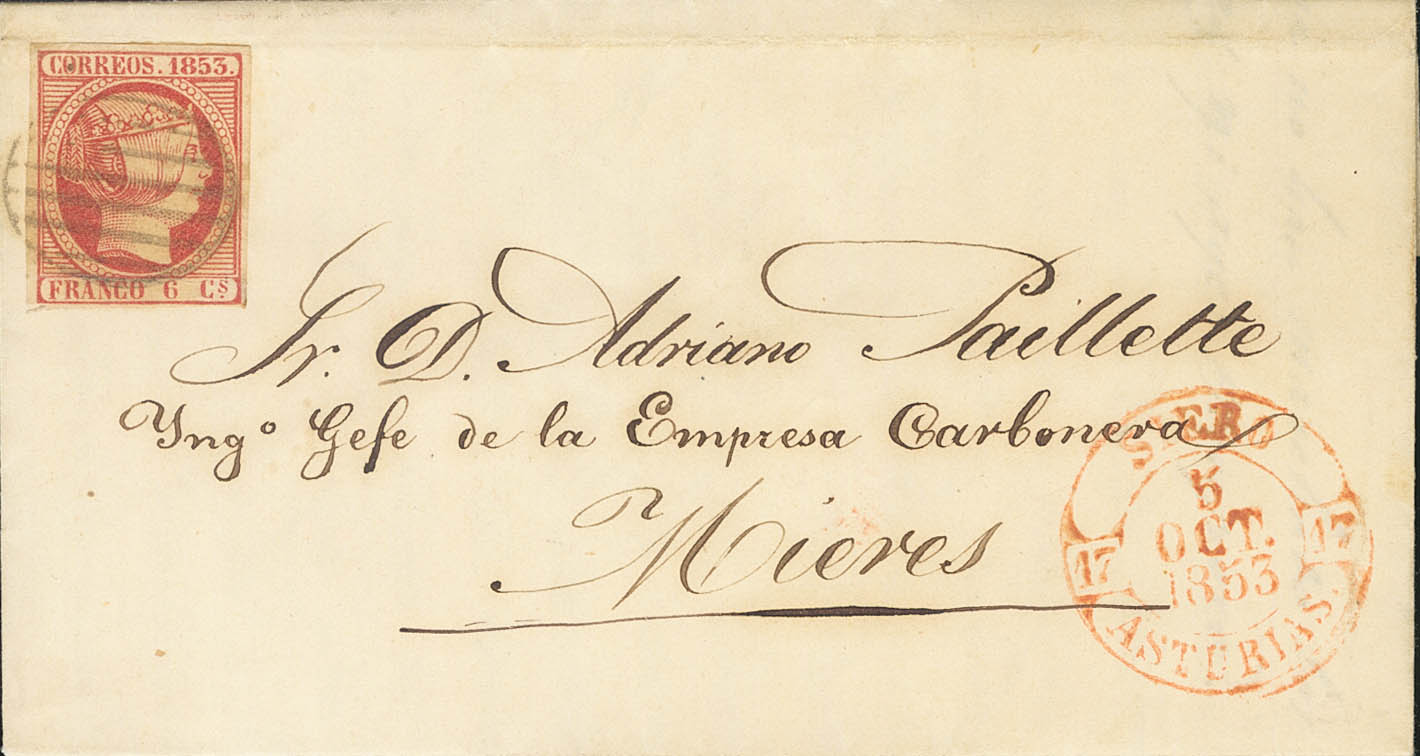 CORREOS. 1853.
FRANCO 6 Cs
Sr. D. Adriano Paillette
Yngo Gefe de la Empresa Carbonera
Mieres
SIERO
5
OCT.
1853
17 17
ASTURIAS.